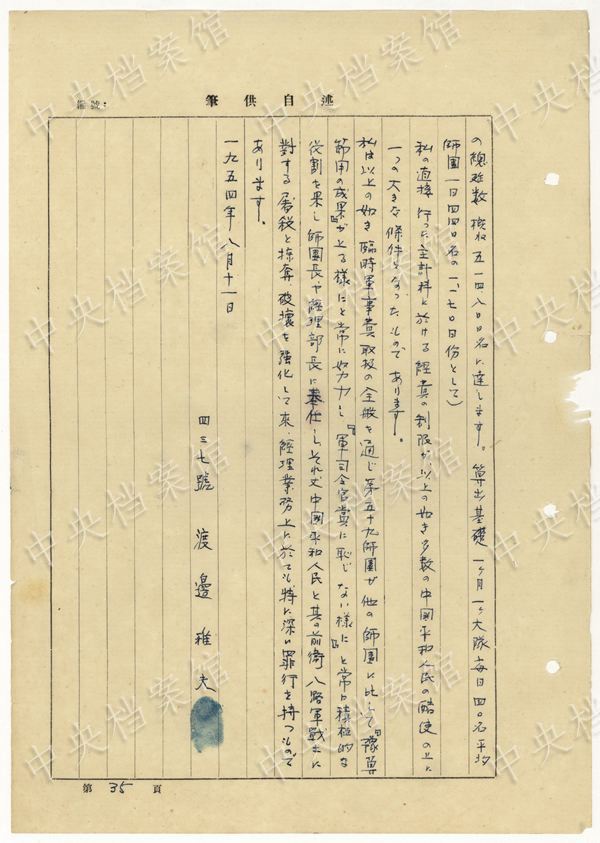 編號:
筆供自述
の總延数 概収 五一四、八〇〇名に達します。算出基礎 一ヶ月一ヶ大隊毎日四〇名平均
師團一日四四〇名の一、一七〇日份として)
私の直接行った主計科に於ける経費の制限が、以上の如き多数の中國平和人民の酷使の上に
一つの大きな條件となったものであります。
私は以上の如き臨時軍事費取扱の全般を通じ第五十九師團が他の師團に比して『豫算
節用の成果』が上る様にと常に努力し『軍司令官賞に恥じない様に』と常に積極的な
役割を果し師團長や経理部長に奉仕し、それ丈中國平和人民と其の前衛八路軍戰士に
對する屠殺と掠奪、破壊を強化して来、経理業務上に於ても特に深い罪行を持つもので
あります。
一九五四年八月十一日
四三七號 渡邊雅夫
第 35 頁
中央档案馆